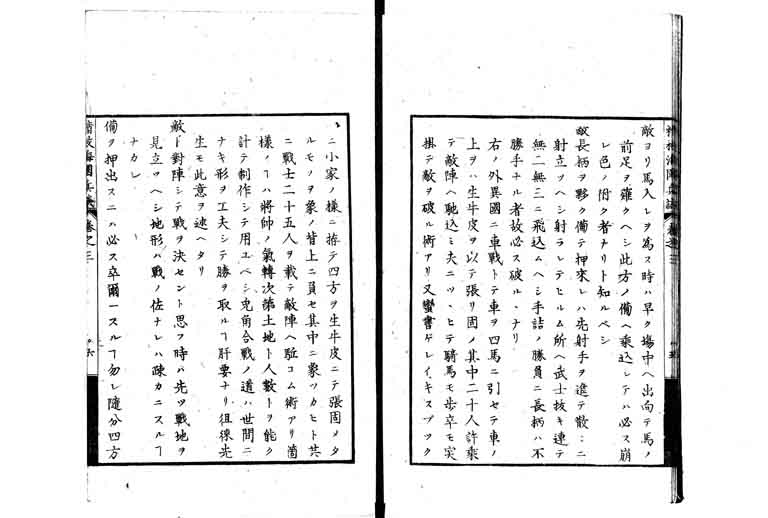 敵ヨリ馬入レヲ為ス時ハ早ク場中ヘ出向テ馬ノ
前足ヲ薙クヘシ此方ノ備ヘ乘込レテハ必ス崩
レ色ノ附ク者ナリト知ルベシ
敵長柄ヲ夥ク備テ押來レハ先射手ヲ進テ散〻ニ
射立ツヘシ射ラレテヒルム所ヘ武士抜キ連テ
無二無三ニ飛込ムヘシ手詰ノ勝負ニ長柄ハ不
勝手ナル者故必ス破ル丶ナリ
右ノ外異國ニ車戰トテ車ヲ四馬ニ引セテ車ノ
上ヲハ生牛皮ヲ以テ張リ固メ其中ニ十人許乘
テ敵陣ヘ馳込ミ夫ニツ丶ヒテ騎馬モ歩卒モ突
掛テ敵ヲ破ル術アリ又蠻書ゲレイキスブック
丶ニ小家ノ樣ニ拵テ四方ヲ生牛皮ニテ張固メタ
ルモノヲ象ノ背上ニ負セ其中ニ象ツカヒト共
ニ戰士二十五人ヲ載テ敵陣ヘ駈コム術アリ箇
樣ノヿハ將帥ノ氣轉次第土地ト人數トヲ能ク
計テ制作シテ用ユベシ兎角合戰ノ道ハ世間ニ
ナキ形ヲ工夫シテ勝ヲ取ルヿ肝要ナリ徂徠先
生モ此意ヲ述ヘタリ
敵ト對陣シテ戰ヲ決セント思フ時ハ先ツ戰地ヲ
見立ツヘシ地形ハ戰ノ佐ナレハ疎カニスルヿ
ナカレ
備ヲ押出スニハ必ス卒爾ースルヿ勿レ隨分四方